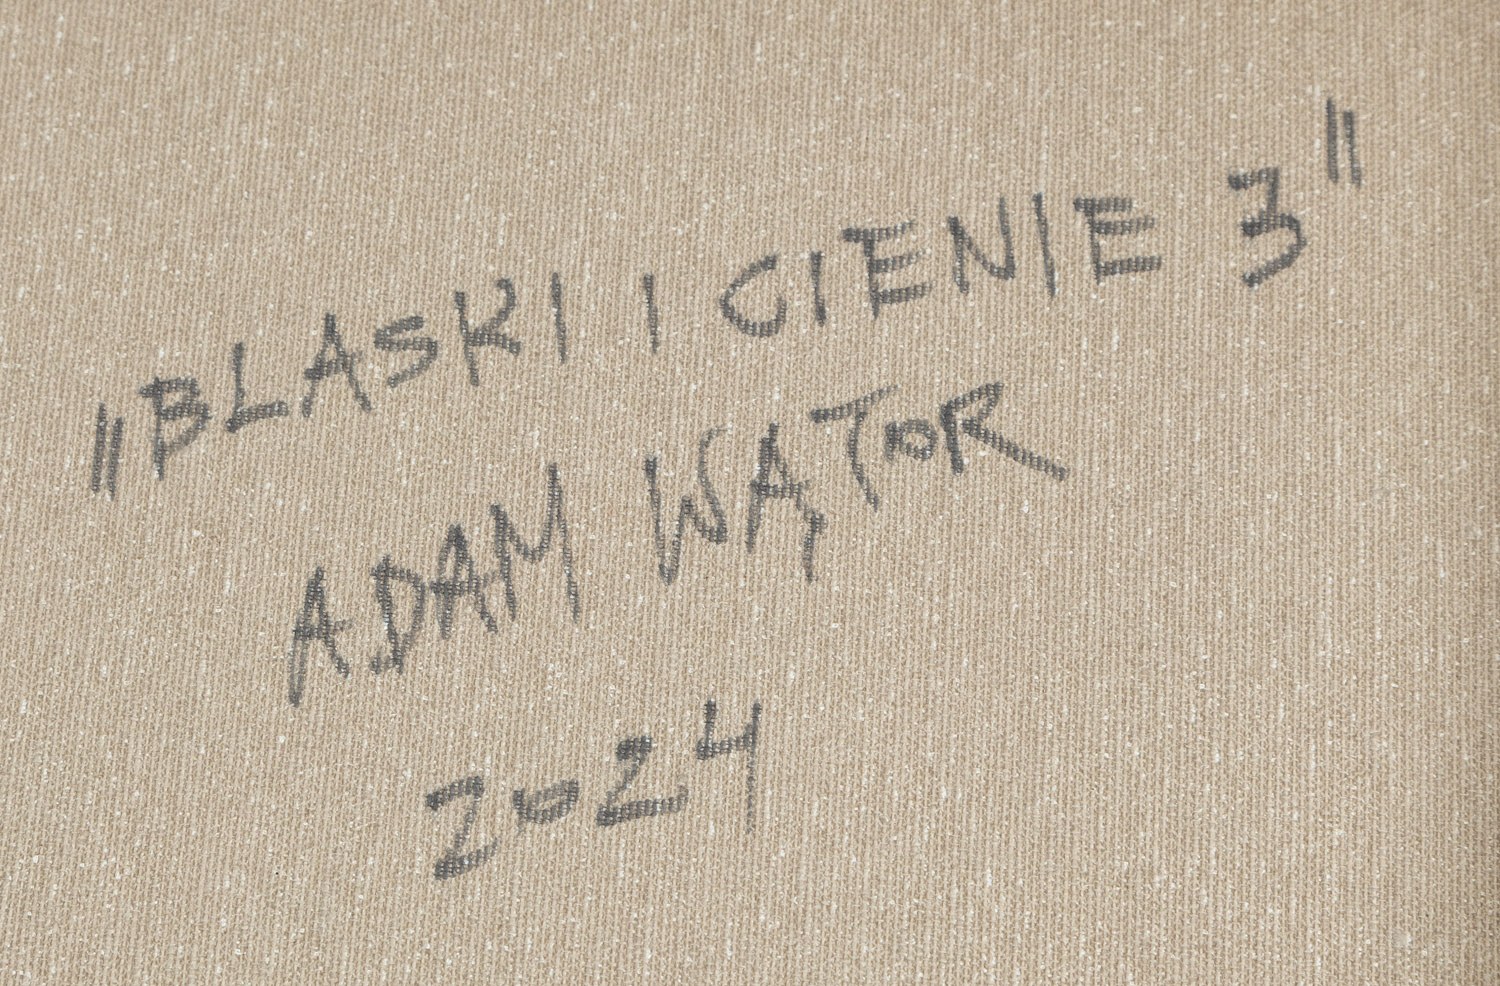 "BLASKI I CIENIE 3"
ADAM WĄTOR
2024